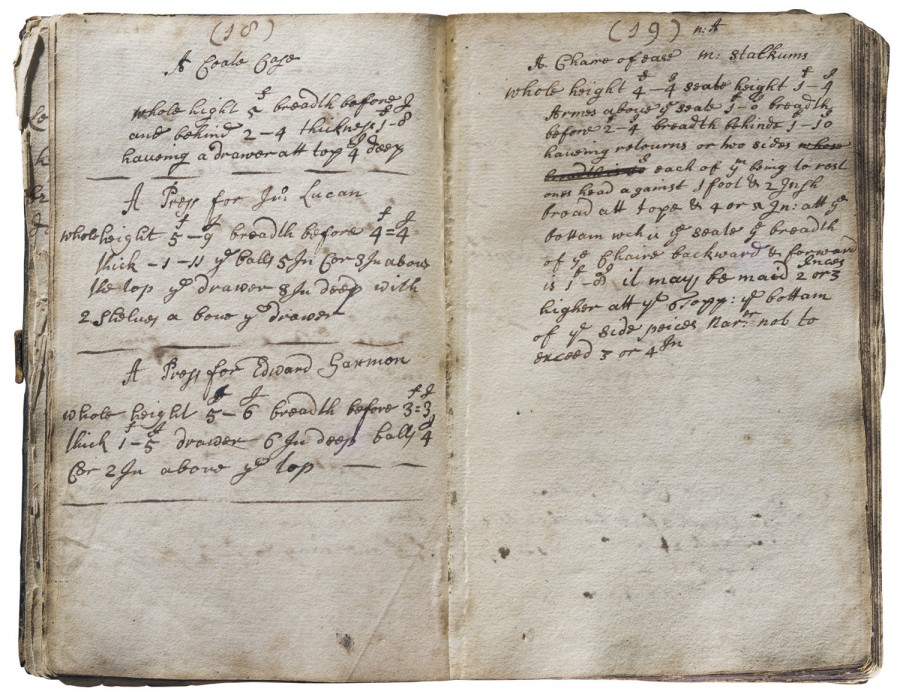 (18)
A Coate Case
whole hight 5 f breadth before J
and behind 2-4 thickness 1-8
haueing a drawer att top 4 J deep
A Press for Jno Lucan
whole height 5 f - 9 J breadth before 4 f = 4 J
thick -1-11 ye balls 5 Jn Cor 3 Jn aboue
the top ye drawer 8 Jn deep with
2 Shelues a boue ye drawer
A Press for Edward Harmon
whole height 5 f - 6 J breadth before 3 f = 3 J
thick 1 f - 5 J drawer 6 Jn deep balls 4 J
Cor 2 Jn aboue ye top
(19) n: A
A Chaire of ease m: Stalkums
whole height 4 f - 4 J seate height 1 f - 4 J
Armes aboue ye seate 1 f - 0 J breadth
before 2-4 breadth behinde 1-10
haueing returns or two sides whose
breadth is to each of ym being to rest
ones head against 1 foot & 2 Jnsh
broad att tope & 4 or Jn: att ye
bottom wch is ye seate ye breadth
of ye Chaire backward & forward
is 1 f - J it may be maid 2 or 3 Jnces
higher att ye topp: ye bottam
of ye side peices not to
exceed 3 or 4 Jn